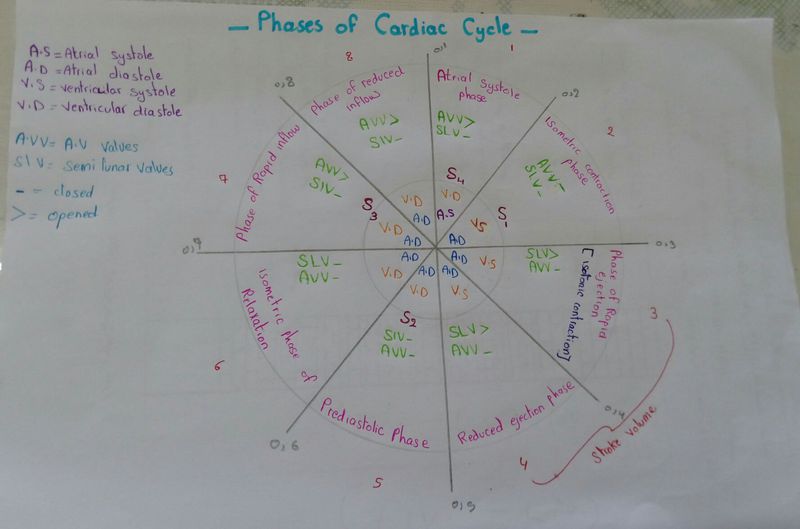 — Phases of Cardiac Cycle —
A.S = Atrial systole
A.D = Atrial diastole
V.S = ventricular systole
V.D = ventricular diastole
A.V V = A.V valves
S L V = Semi lunar valves
- = closed
> = opened
0,1
1
Atrial systole
phase
AVV >
SLV -
S4
V.D
A.S
0,2
2
isometric contraction
phase
AVV -
SLV -
S1
VS
A.D
0,3
3
Phase of Rapid
ejection
[isotonic contraction]
SLV >
AVV -
V.S
A.D
0,4
Stroke volume
4
Reduced ejection phase
SLV >
AVV -
V.S
A.D
0,5
5
Prediastolic Phase
S2
SLV -
AVV -
V.D
A.D
0,6
6
isometric phase of
Relaxation
SLV -
AVV -
V.D
A.D
0,7
7
Phase of Rapid inflow
AVV >
SLV -
S3
V.D
A.D
0,8
8
Phase of reduced
inflow
AVV >
SLV -
V.D
A.D